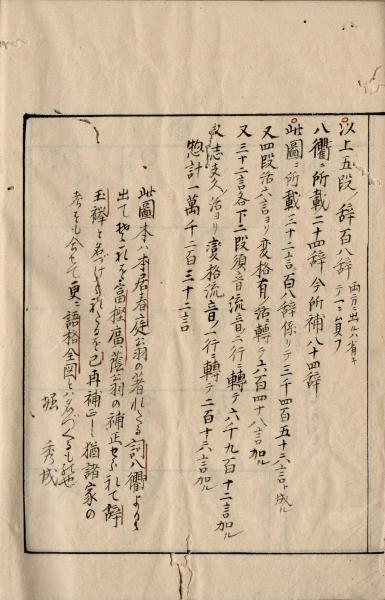 以上五段ノ辞百八辞 両方出ルハ省キテ一ニ算フ
八衢ニ所載二十四辞 今所補八十四辞
此圖ニ所載三十二言百八辞係リテ三千四百五十六言ト成ル
又四段活六言ヨリ変格有ノ活ニ轉テ六百四十八言加ル
又三十二言各下二段須音流音ノ二行ニ轉テ六千九百十二言加ル
志変ノ活ヨリ變格流音ノ一行ニ轉テ二百十六言加ル
惣計一萬千二百三十二言
此圖本ハ本居春庭公羽の著れたる詞八衢より
出てそれを富樫廣蔭公羽の補正せられて辞
玉襷と名づけられたるを己再補正し猶諸家の
考をも合せて更ニ語格全図とハ名づくるも也
堀 秀成